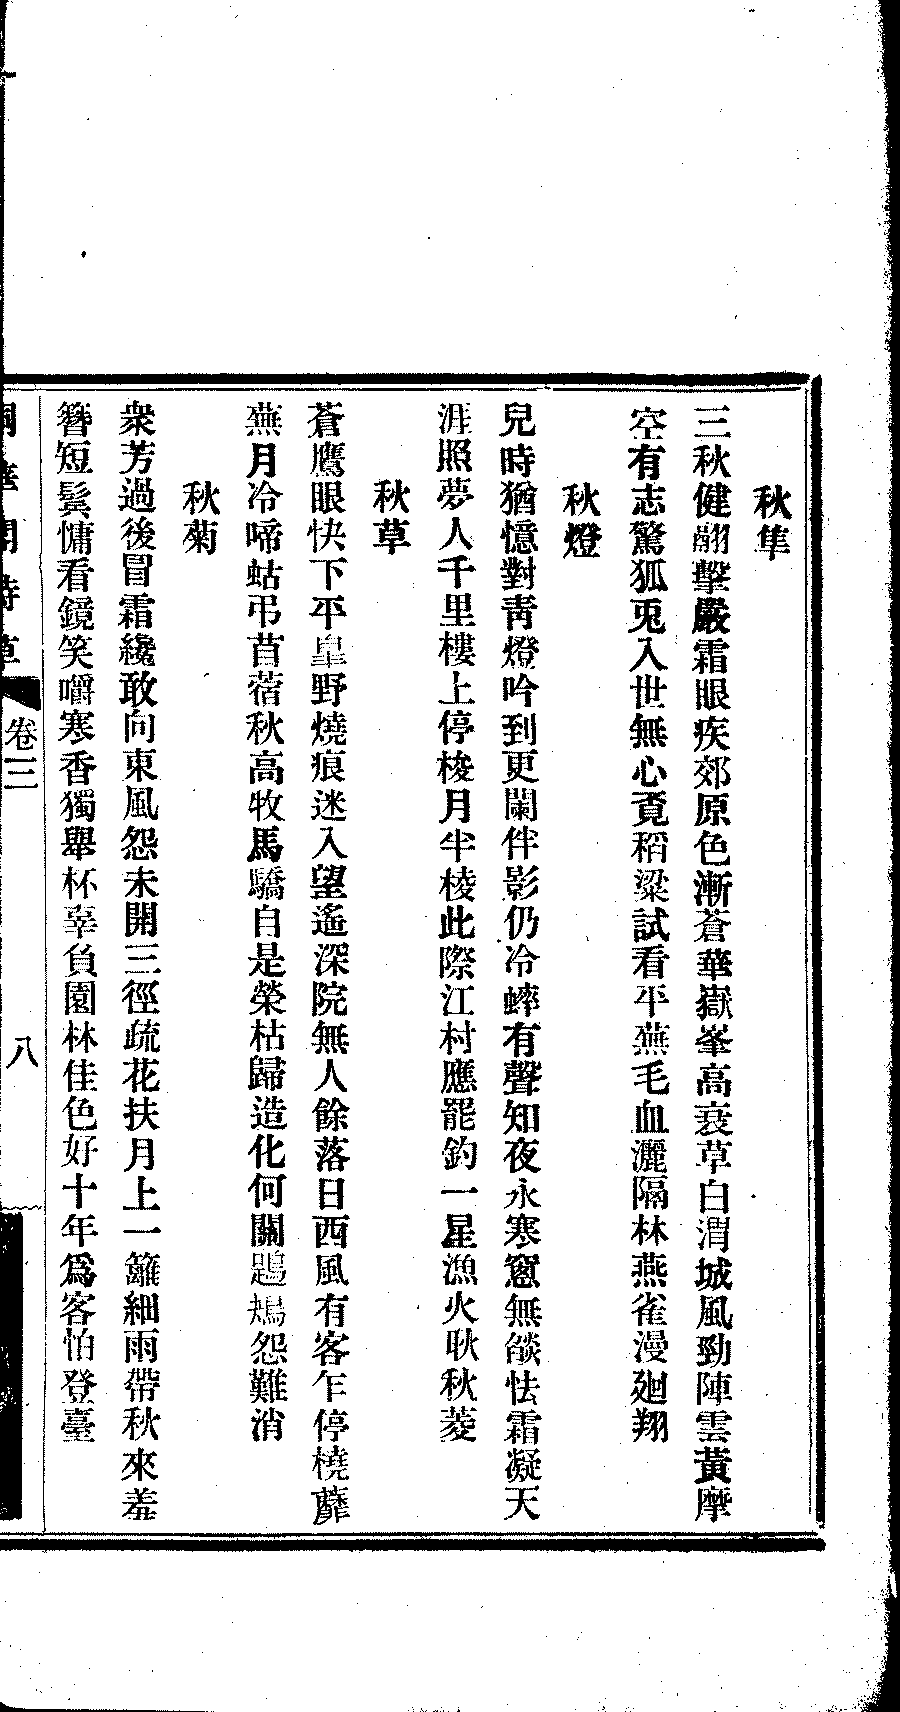 秋隼
三秋健翮擊嚴霜眼疾郊原色漸蒼華嶽峯高衰草白渭城風勁陣雲黃摩
空有志驚狐兎入世無心覔稻粱試看平蕪毛血灑隔林燕雀漫廻翔
秋燈
兒時猶憶對靑燈吟到更闌伴影仍冷蟀有聲知夜永寒窻無燄怯霜凝天
涯照夢人千里樓上停梭月半棱此際江村應罷釣一星漁火耿秋菱
秋草
蒼鷹眼快下平臯野燒痕迷入望遙深院無人餘落日西風有客乍停橈蘼
蕪月冷啼蛄弔苜蓿秋高牧馬驕自是榮枯歸造化何關鶗鴂怨難消
秋菊
衆芳過後冒霜纔敢向東風怨未開三徑疏花扶月上一籬細雨帶秋來羞
簪短鬂慵看鏡笑嚼寒香獨舉杯辜負園林佳色好十年爲客怕登臺
卷三
八